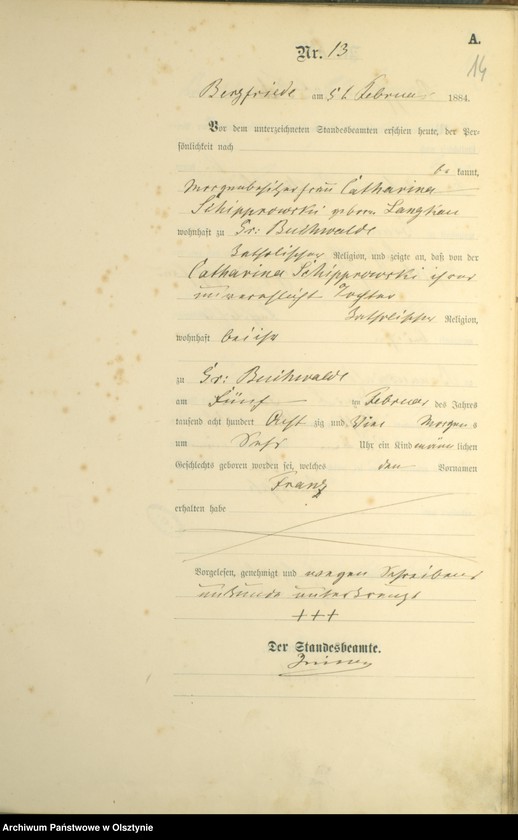 A.
14
Nr. 13
Bergfriede am 5t Februar 1884.
Vor dem unterzeichneten Standesbeamten erschien heute, der Per-
sönlichkeit nach
be kannt,
Morgenbesitzerfrau Catharina
Schipprowski geborne Langkau
wohnhaft zu Gr: Buchwalde
katholischer Religion, und zeigte an, daß von der
Catharina Schipprowski ihrer
unverehlicht Tochter
katholischer Religion,
wohnhaft bei ihr
zu Gr: Buchwalde
am Fünf ten Februar des Jahres
tausend acht hundert Acht zig und Vier Morgens
um Sechs Uhr ein Kind männ lichen
Geschlechts geboren worden sei, welches den Vornamen
Franz
erhalten habe
Vorgelesen, genehmigt und wegen Schreibens
unkunde unterkreuzt
+++
Der Standesbeamte.
Archiwum Państwowe w Olsztynie